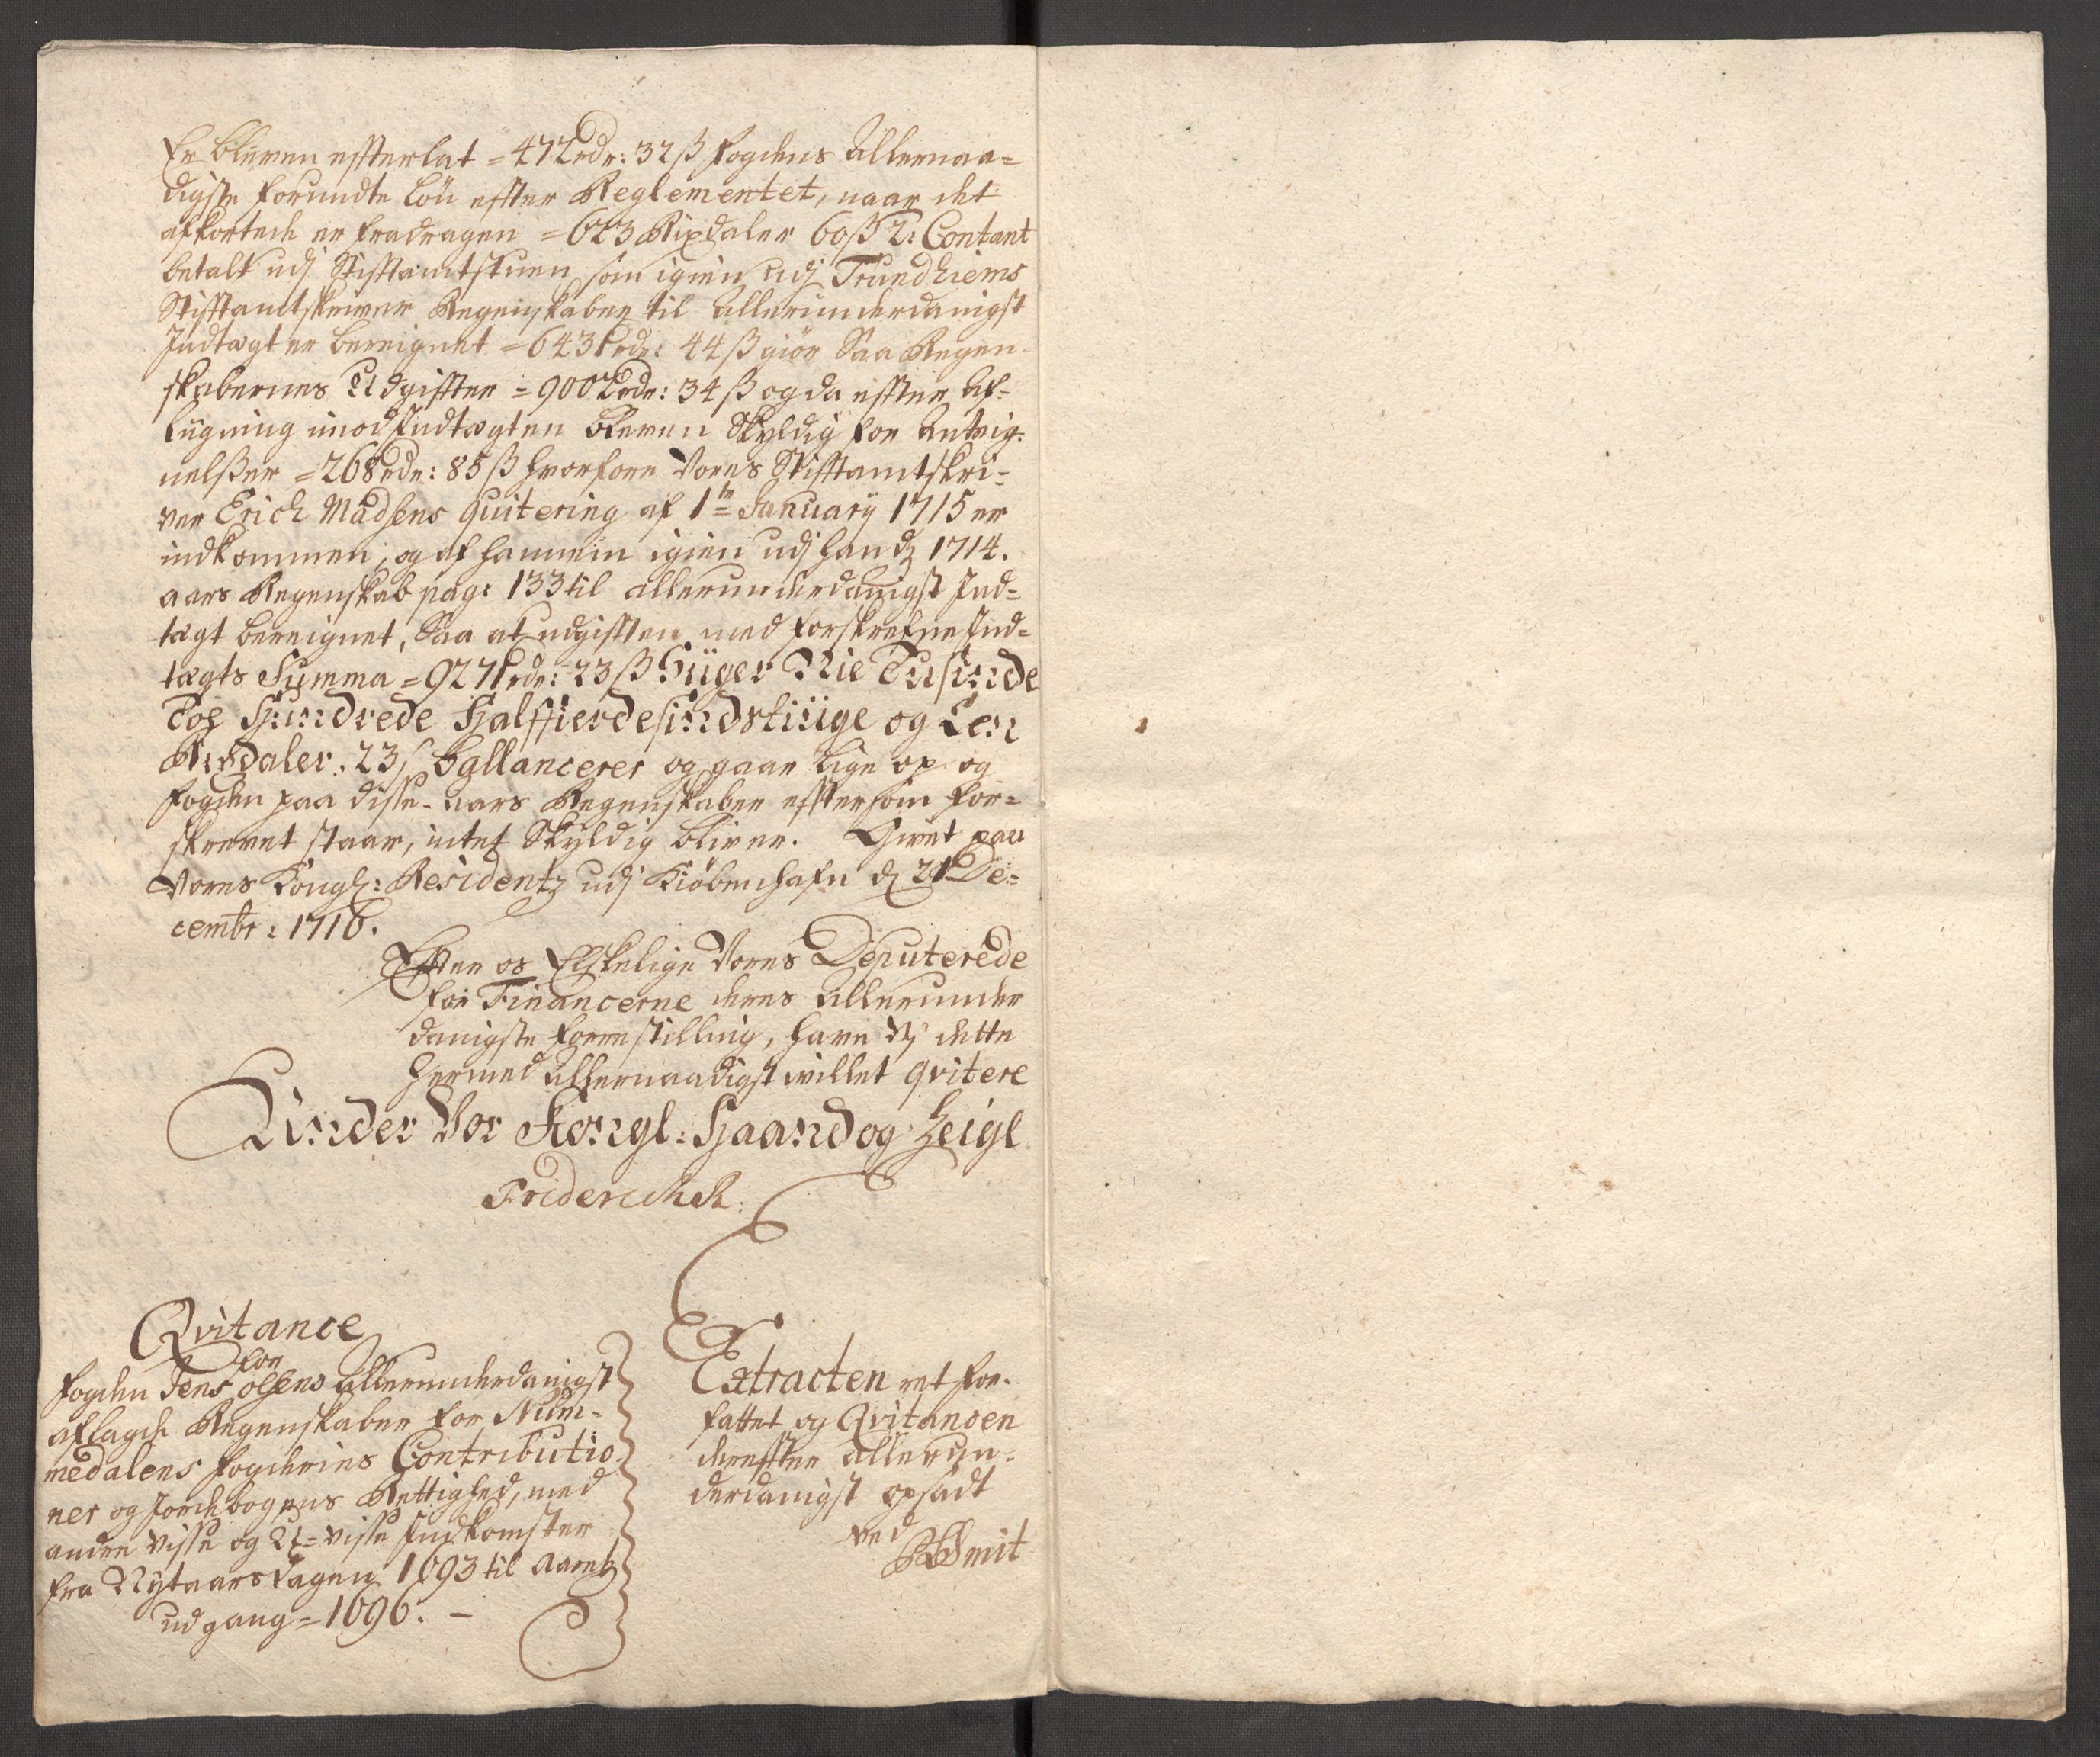 Er bleven efterlat = 472 rdr: 32 ß fogdens Allernaa-
digste forundte Løn efter Reglementet, naar det
afkortede er fradragen = 623 Rixdaler 60 ß 2: Contant
betalt udj Stifftamtstuen som igien udj Trundhiems
Stifftamtskriver Regenskaber til Allerunderdanigst
Indtægt er bereignet = 6431 rdr: 44 ß giør Saa Regen-
skabernes Udgiffter = 9002 rdr: 34 ß og da effter Af-
lugning imod Indtægten bleven Skyldig for Anteig-
nelsser = 268 rdr: 85 ß hvorfore Vores Stifftamtskri-
ver Erich Madsens Quitering af 1te January 1715 er
indkommen, og af hannem igien udj handz 1714.
aars Regenskab pag: 133 til allerunderdanigst Ind-
tægt bereignet, Saa at udgifften med forskrefne Ind-
tægts Summa = 9271 rdr: 23 ß siiger Nie Tusinde
Toe Hundrede Halffierdesindstiiuge og Een
Rixdaler. 23 ß Ballancerer og gaar lige op og
fogden paa disse aars Regenskaber efftersom for-
skrevet staar, intet Skyldig bliver. Givet paa
Vores Kongl: Residentz udj Kiøbenhafn d 21 De-
cembr: 1716.
Efter os Elskelige Vores Deputerede
for Financerne deres allerunder
danigste forrestilling, have Vj dette
hermed allernaadigst villet qvitere
Under Vor Kongl: Haand og Zeigl
Friderich R:
Qvitance
for
fogden Jens Olsens allerunderdanigst
aflagde Regenskaber for Num-
medalens fogderies Contributio-
ner og Jordebogens Rettighed, med
andre visse og U-visse Indkomster
fra Nytaarsdagen 1693 til Aaretz
udgang = 1696. -
Extracten ret for-
fattet og Qvitancen
dereffter allerun-
derdanigst opsadt
ved
Smit